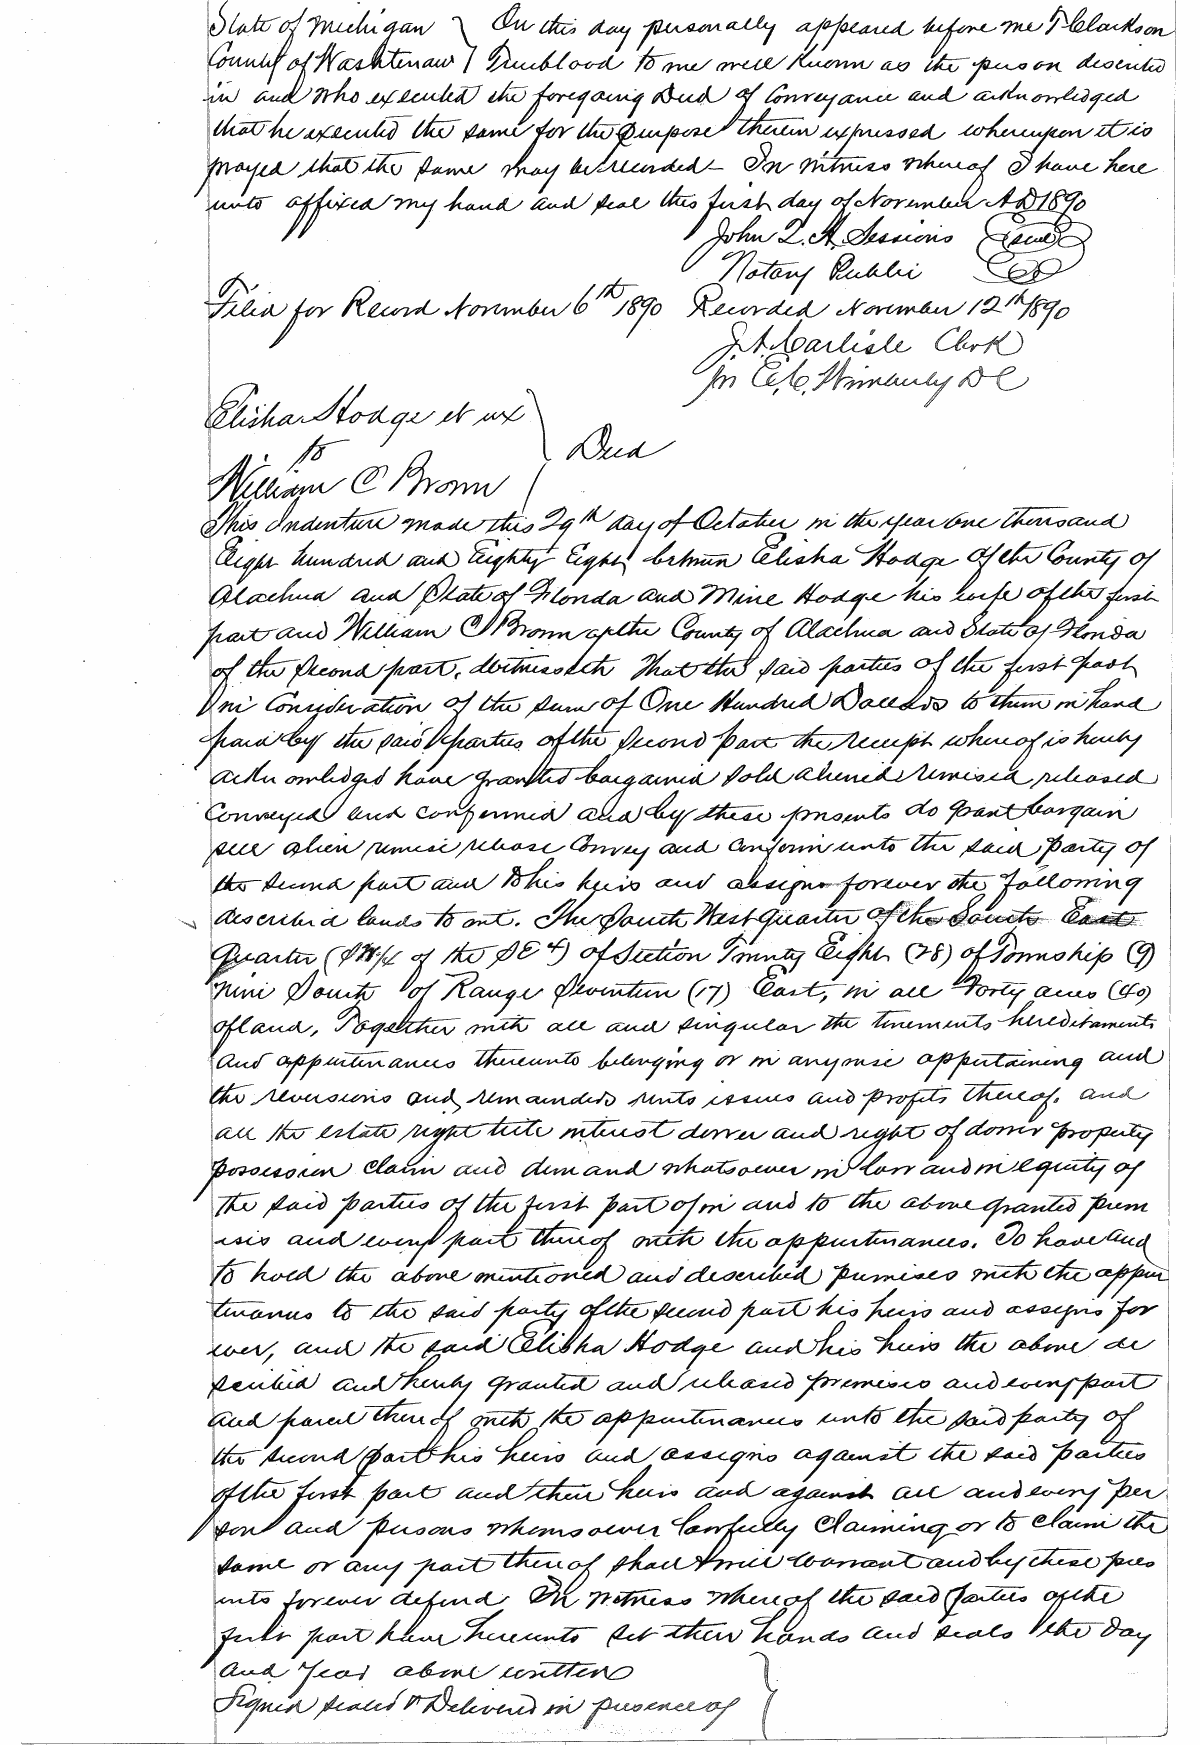 State of Michigan } On this day personally appeared before me T Clarkson
County of Washtenaw } Trueblood to me well known as the person described
in and who executed the foregoing Deed of Conveyance and acknowledged
that he executed the same for the purpose therein expressed whereupon it is
prayed that the same may be recorded – In witness whereof I have here
unto affixed my hand and seal this first day of November A D 1890
John Q. A. Sessions (Seal)
Notary Public
Filed for Record November 6th 1890 Recorded November 12th 1890
J. A. Carlisle Clerk
pr C. C. Wimberly D C
Elisha Hodge et ux
to } Deed
William C Brown
This Indenture made this 29th day of October in the year one thousand
Eight hundred and Eighty Eight between Elisha Hodge of the County of
Alachua and State of Florida and Mine Hodge his wife of the first
part and William C Brown of the County of Alachua and State of Florida
of the second part, witnesseth That the said parties of the first part
in Consideration of the sum of One Hundred Dollars to them in hand
paid by the said parties of the second part the receipt whereof is hereby
acknowledged have granted bargained sold aliened remised released
Conveyed and confirmed and by these presents do grant bargain
sell alien remise release Convey and confirm unto the said party of
the second part and to his heirs and assigns forever the following
described lands to wit. The South West Quarter of the South East
Quarter (SW/4 of the SE 4) of Section Twenty Eight (28) of Township (9)
nine South of Range Seventeen (17) East, in all Forty acres (40)
of land, Together with all and singular the tenements hereditaments
and appurtenances thereunto belonging or in anywise appertaining and
the reversions and remainders rents issues and profits thereof, and
all the estate right title interest dower and right of dower property
possession claim and demand whatsoever in law and in equity of
the said parties of the first part of in and to the above granted prem
isis and every part thereof with the appurtenances. To have and
to hold the above mentioned and described premises with the appur
tenances to the said party of the second part his heirs and assigns for
ever, and the said Elisha Hodge and his heirs the above de
scribed and hereby granted and released premises and every part
and parcel thereof with the appurtenances unto the said party of
the second part his heirs and assigns against the said parties
of the first part and their heirs and against all and every per
son and persons whomsoever lawfully claiming or to claim the
same or any part thereof shall & will warrant and by these pres
ents forever defend. In witness whereof the said parties of the
first part have hereunto set their hands and seals the day
and year above written
Signed sealed & Delivered in presence of }